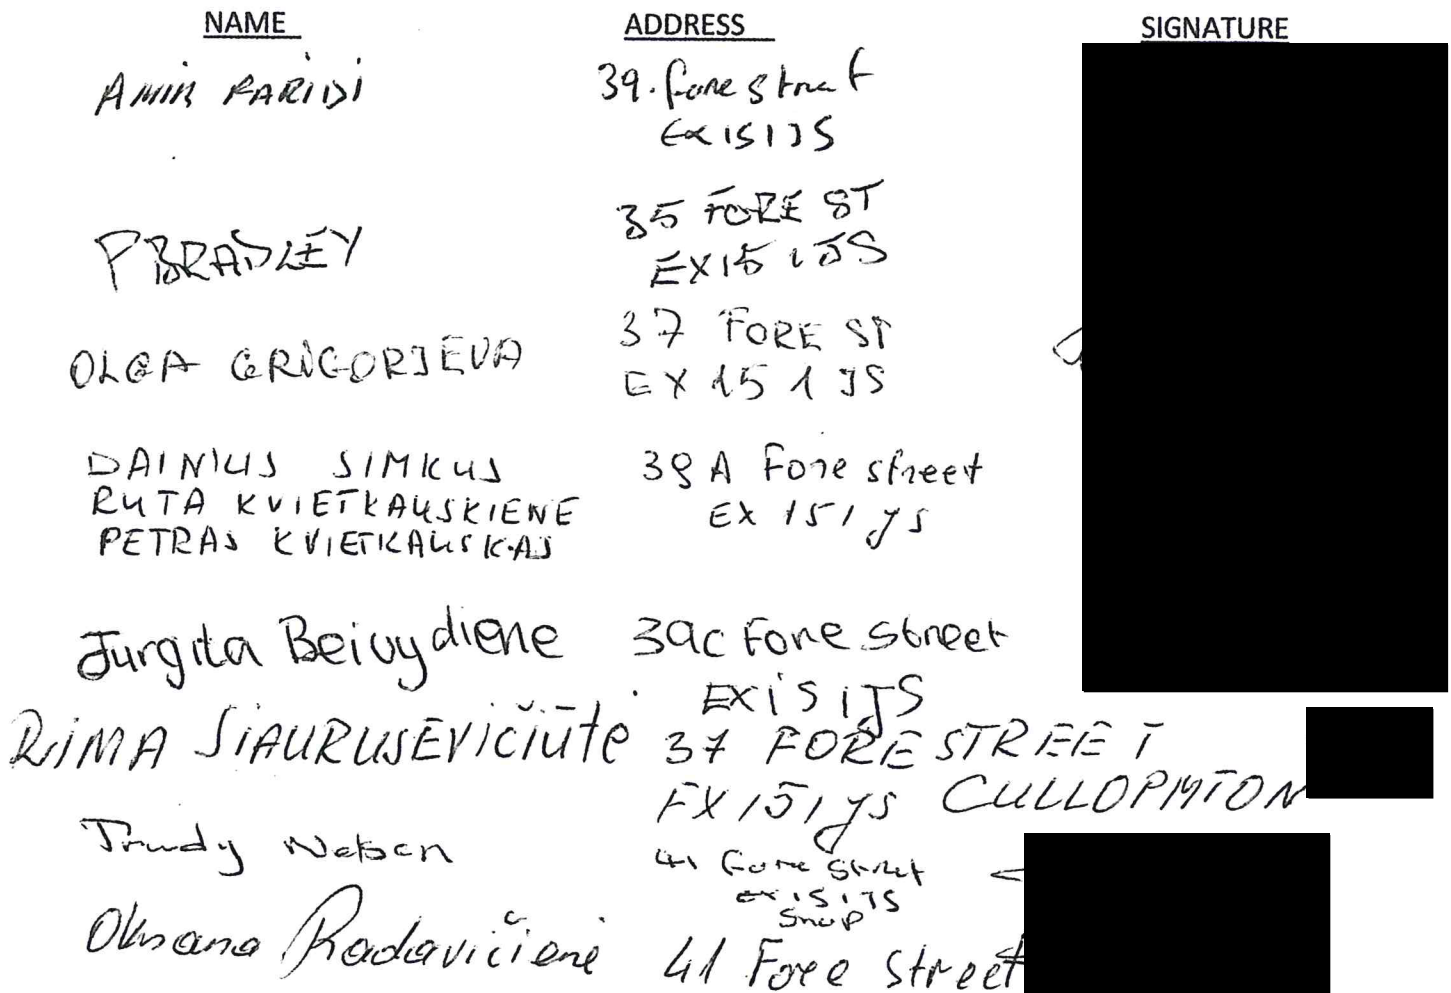 NAME ADDRESS SIGNATURE
AMIR FARIDI 39. fore street
EX15 1JS
P BRADLEY 35 FORE ST
EX15 1JS
OLGA GRIGORJEVA 37 FORE ST
EX 15 1 JS
DAINIUS SIMKUS 39 A Fore street
RUTA KVIETKAUSKIENE EX 15 1 JS
PETRAS KVIETKAUSKAS
Jurgita Beivydiene 39c Fore street
EX15 1JS
RIMA SIAURUSEVIČIŪTĖ 37 FORE STREET
EX 15 1 JS CULLOPMTON
Trudy 41 Fore Street
EX15 1JS
Shop
Oksana Radavičienė 41 Fore Street